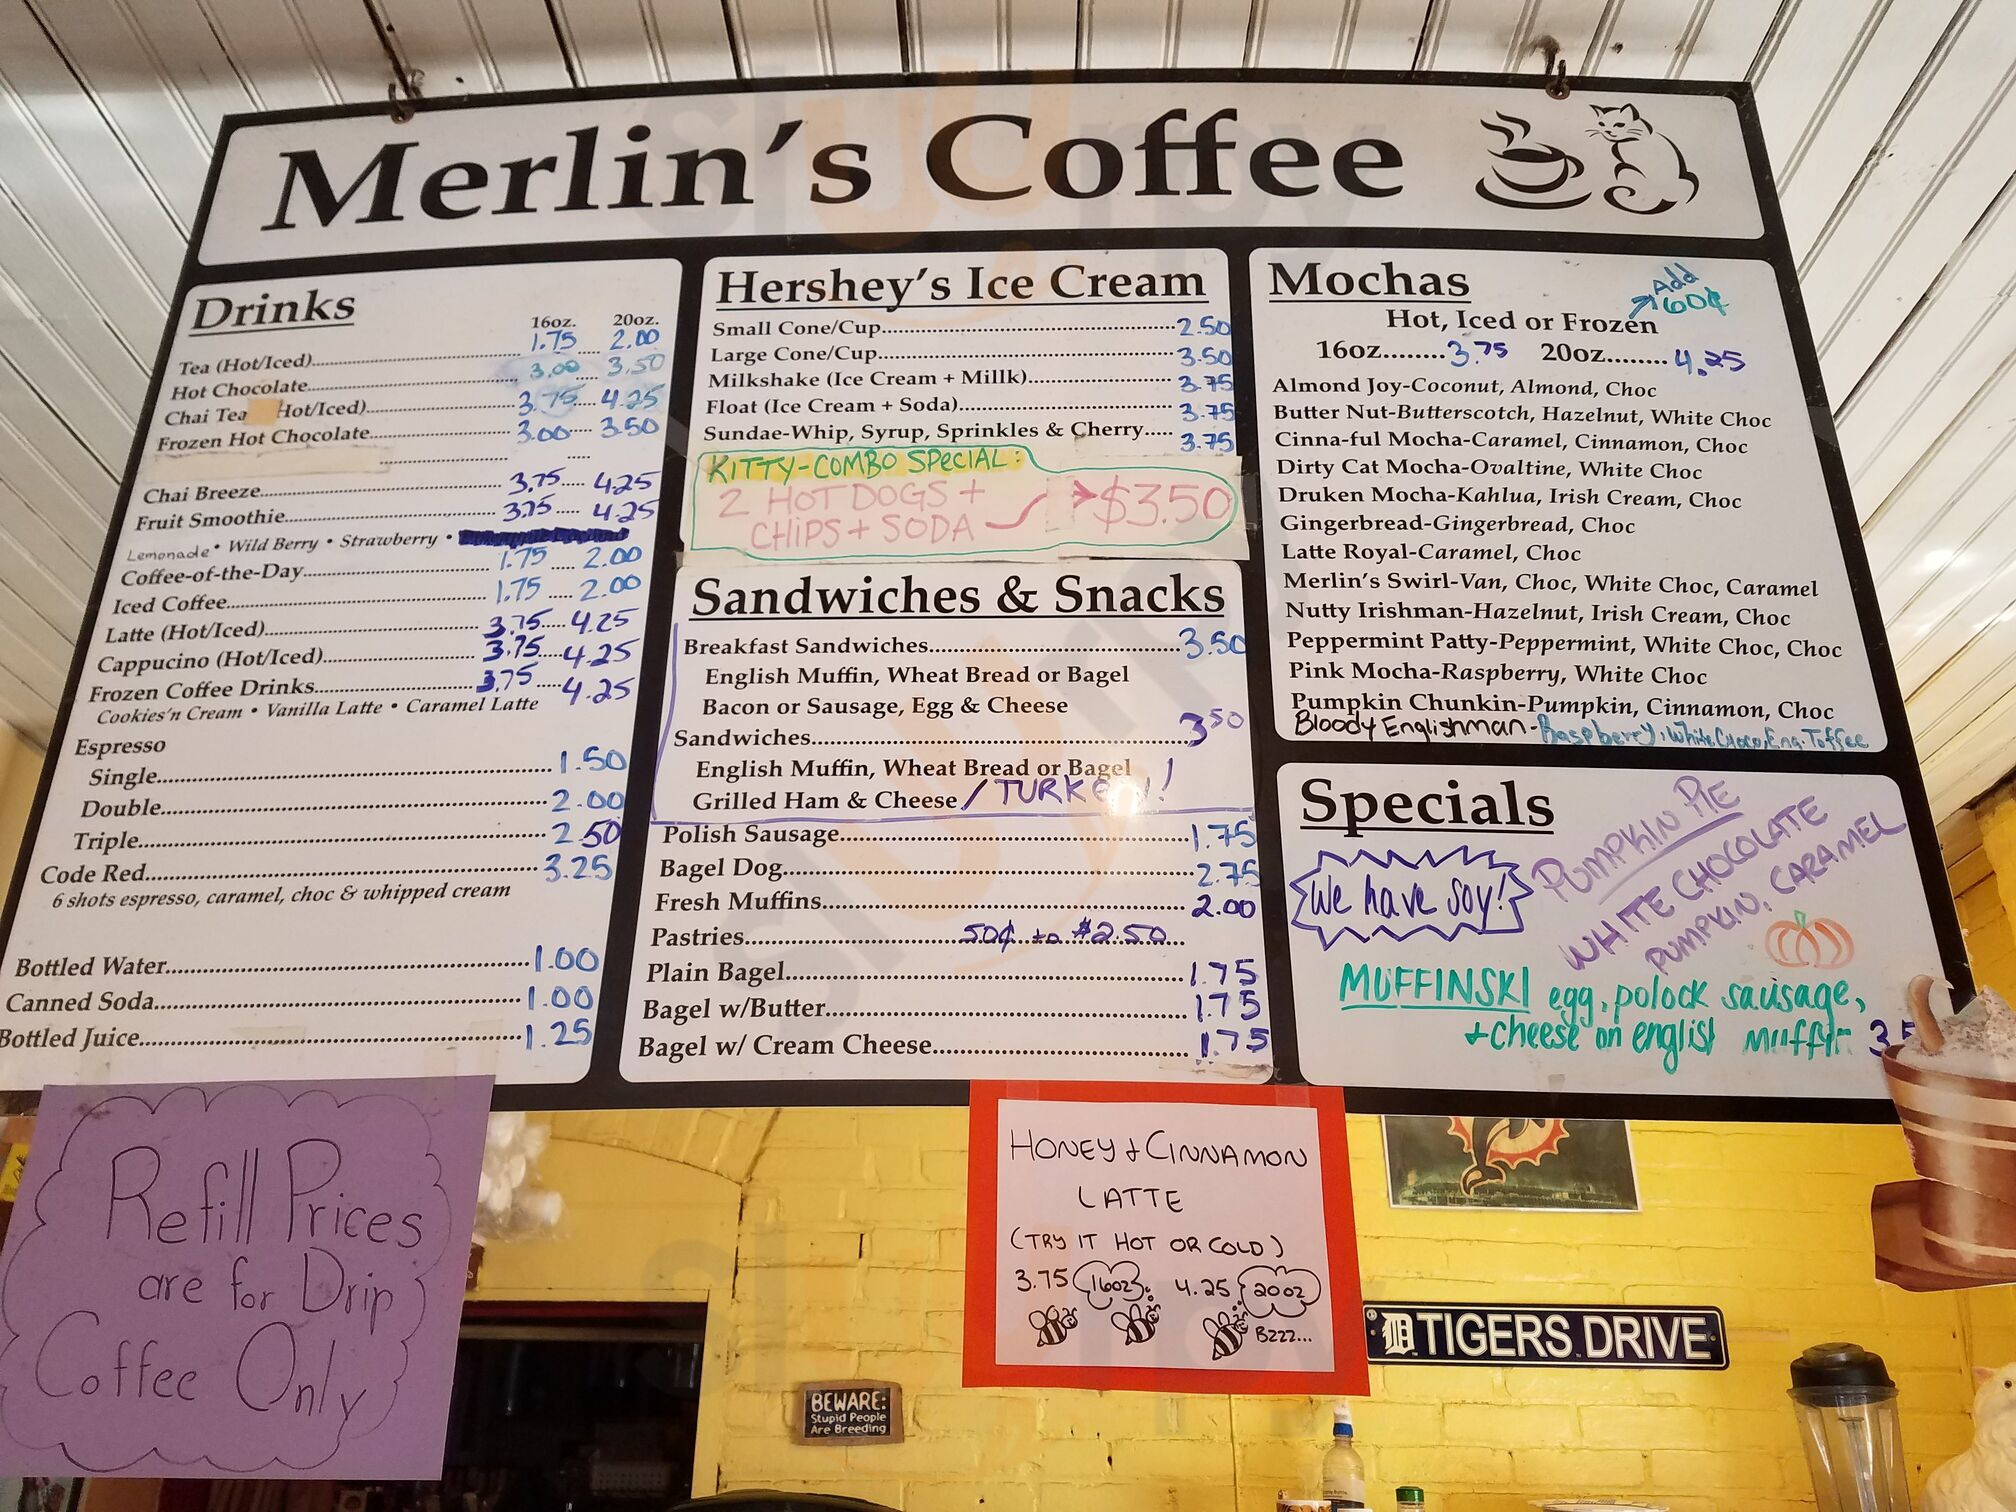 Merlin's Coffee
Drinks
16oz. 20oz.
Tea (Hot/Iced) 1.75 2.00
Hot Chocolate 3.00 3.50
Chai Tea Hot/Iced) 3.75 4.25
Frozen Hot Chocolate 3.00 3.50
Chai Breeze 3.75 4.25
Fruit Smoothie 3.75 4.25
Lemonade • Wild Berry • Strawberry •
Coffee-of-the-Day 1.75 2.00
Iced Coffee 1.75 2.00
Latte (Hot/Iced) 3.75 4.25
Cappucino (Hot/Iced) 3.75 4.25
Frozen Coffee Drinks 3.75 4.25
Cookies'n Cream • Vanilla Latte • Caramel Latte
Espresso
Single 1.50
Double 2.00
Triple 2.50
Code Red 3.25
6 shots espresso, caramel, choc & whipped cream
Bottled Water 1.00
Canned Soda 1.00
Bottled Juice 1.25
Hershey's Ice Cream
Small Cone/Cup 2.50
Large Cone/Cup 3.50
Milkshake (Ice Cream + Millk) 3.75
Float (Ice Cream + Soda) 3.75
Sundae-Whip, Syrup, Sprinkles & Cherry 3.75
KITTY-COMBO SPECIAL:
2 HOT DOGS +
CHIPS + SODA $3.50
Sandwiches & Snacks
Breakfast Sandwiches 3.50
English Muffin, Wheat Bread or Bagel
Bacon or Sausage, Egg & Cheese
Sandwiches 3.50
English Muffin, Wheat Bread or Bagel
Grilled Ham & Cheese / TURKEY!
Polish Sausage 1.75
Bagel Dog 2.75
Fresh Muffins 2.00
Pastries 50¢ to $2.50
Plain Bagel 1.75
Bagel w/Butter 1.75
Bagel w/ Cream Cheese 1.75
Mochas
Add 60¢
Hot, Iced or Frozen
16oz 3.75 20oz 4.25
Almond Joy-Coconut, Almond, Choc
Butter Nut-Butterscotch, Hazelnut, White Choc
Cinna-ful Mocha-Caramel, Cinnamon, Choc
Dirty Cat Mocha-Ovaltine, White Choc
Druken Mocha-Kahlua, Irish Cream, Choc
Gingerbread-Gingerbread, Choc
Latte Royal-Caramel, Choc
Merlin's Swirl-Van, Choc, White Choc, Caramel
Nutty Irishman-Hazelnut, Irish Cream, Choc
Peppermint Patty-Peppermint, White Choc, Choc
Pink Mocha-Raspberry, White Choc
Pumpkin Chunkin-Pumpkin, Cinnamon, Choc
Bloody Englishman-Raspberry, White Choco, Eng. Toffee
Specials
We have soy!
PUMPKIN PIE
WHITE CHOCOLATE
PUMPKIN, CARAMEL
MUFFINSKI egg, polock sausage,
+ cheese on english muffin
Refill Prices
are for Drip
Coffee Only
HONEY & CINNAMON
LATTE
(TRY IT HOT OR COLD)
3.75 16oz 4.25 20oz
Bzzz...
TIGERS DRIVE
BEWARE:
Stupid People
Are Breeding